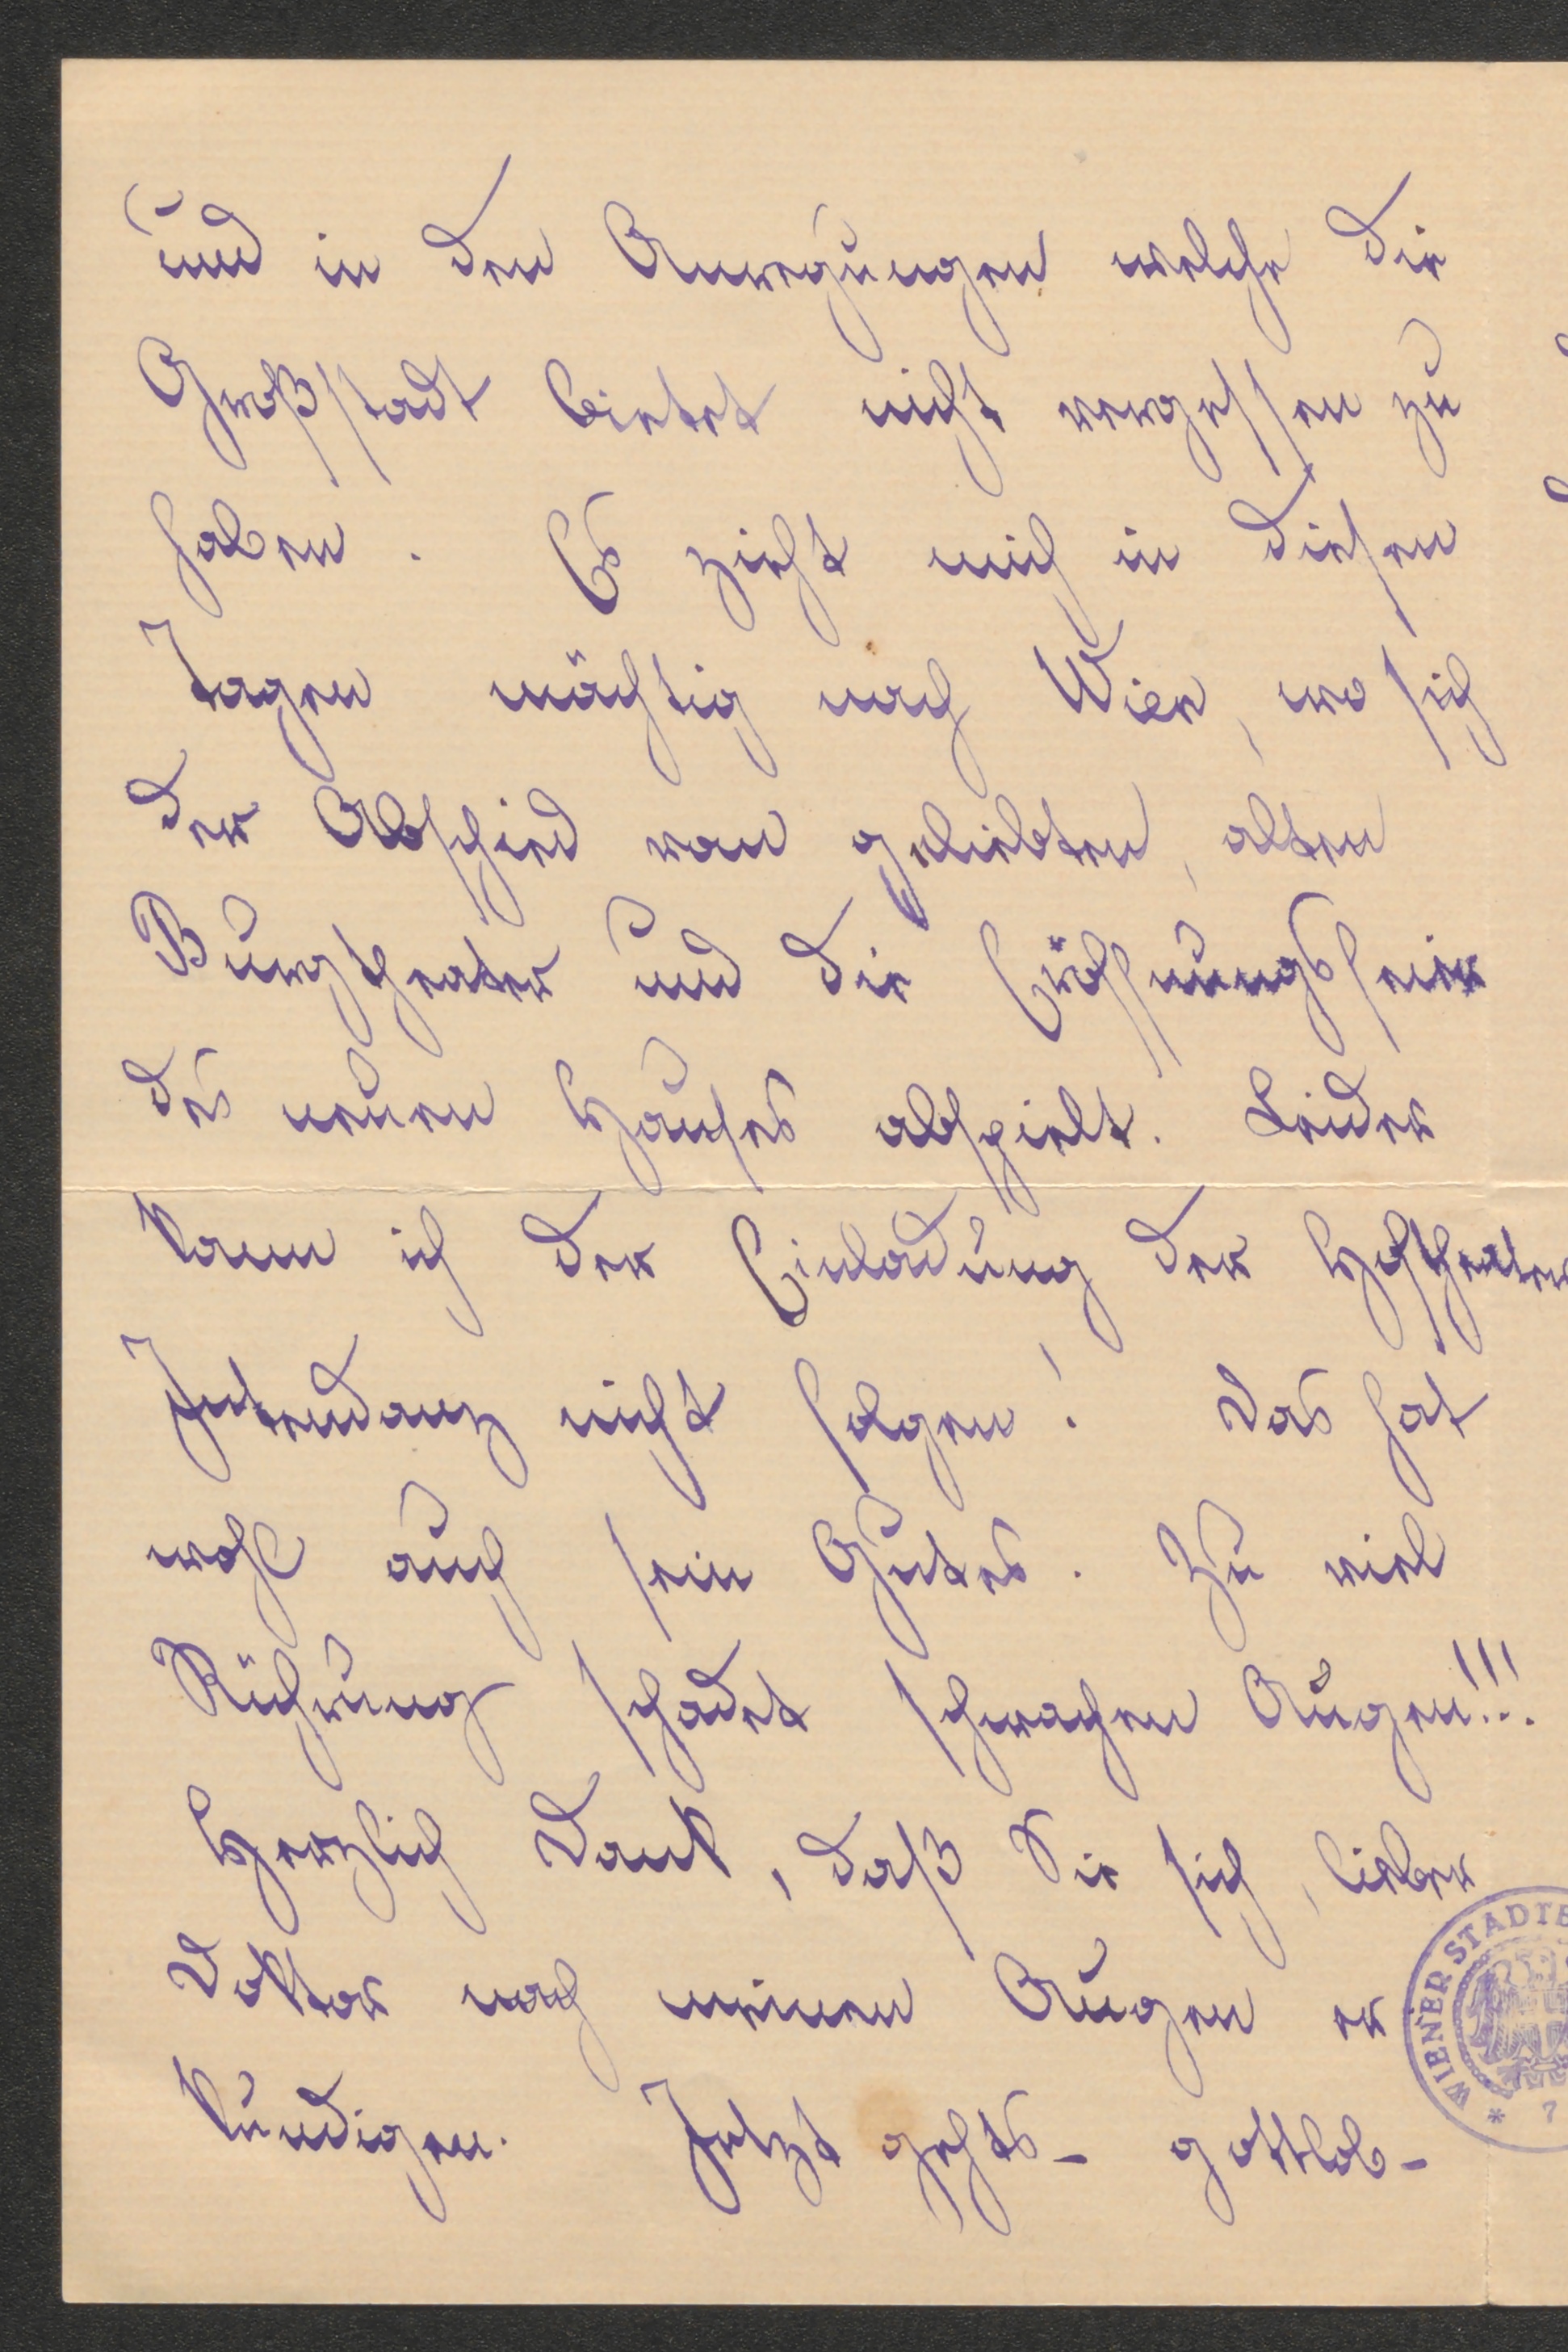 und in den Anregungen welche die
Großstadt bietet nicht vergessen zu
haben. Es zieht mich in diesen
Tagen mächtig nach Wien, wo sich
der Abschied von geliebten, alten
Burgtheater und die Eröffnungsfeier
des neuen Hauses abspielt. Leider
kann ich der Einladung der Hoftheater
Intendanz nicht folgen! Das hat
wohl auch sein Gutes. Zu viel
Rührung schadet schwachen Augen!!!
Herzlich Dank, daß Sie sich, lieber
Doktor nach meinen Augen er
kundigen. Jetzt gehts – gottlob –
WIENER STADTB
* 7